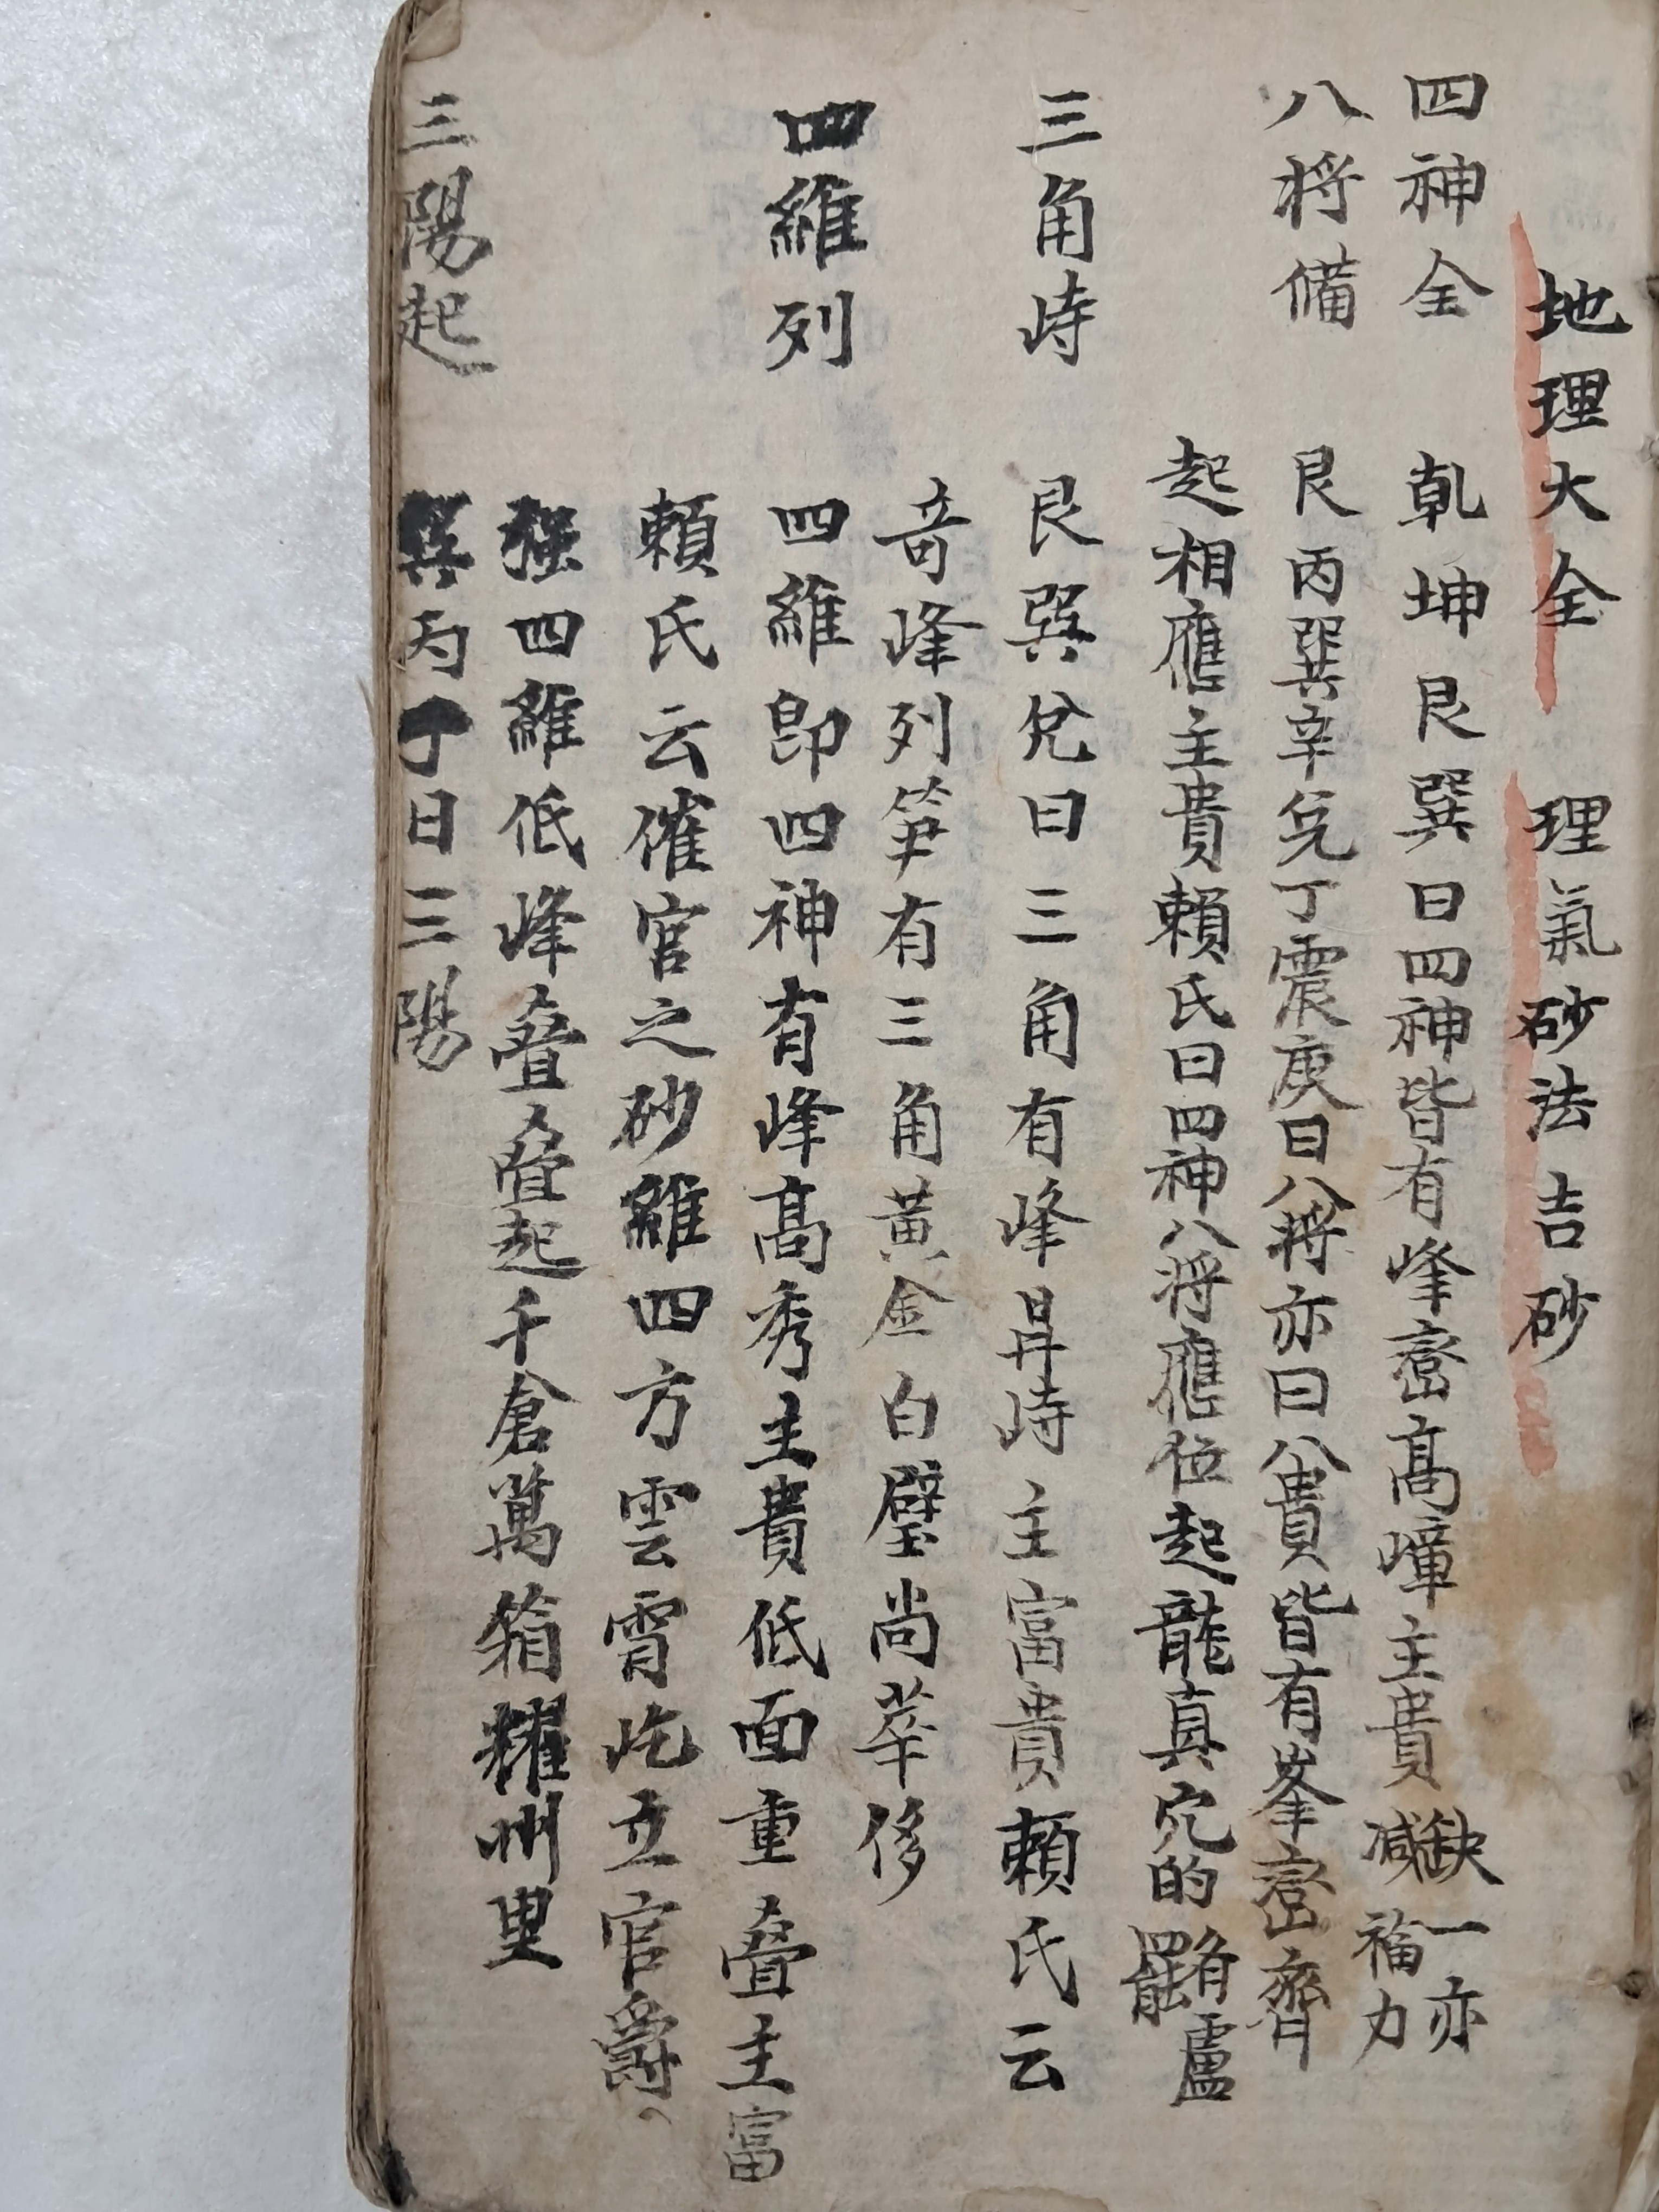 地理大全 理氣砂法吉砂
四神全 乾坤艮巽曰四神皆有峰巒高嶂主貴缺一亦減福力
八将備 艮丙巽辛兌丁震庚曰八将亦曰八貴皆有峯巒齊
起相應主貴賴氏曰四神八将應位起龍真穴的
三角峙 艮巽兌曰三角有峰峙主富貴賴氏云
竒峰列笋有三角黃金白璧尚莘侈
四維列 四維即四神有峰高秀主貴低面重疊主富
賴氏云催官之砂維四方雲霄屹立官爵
強四維低峰疊疊起千倉萬箱耀州里
三陽起 巽丙丁曰三陽